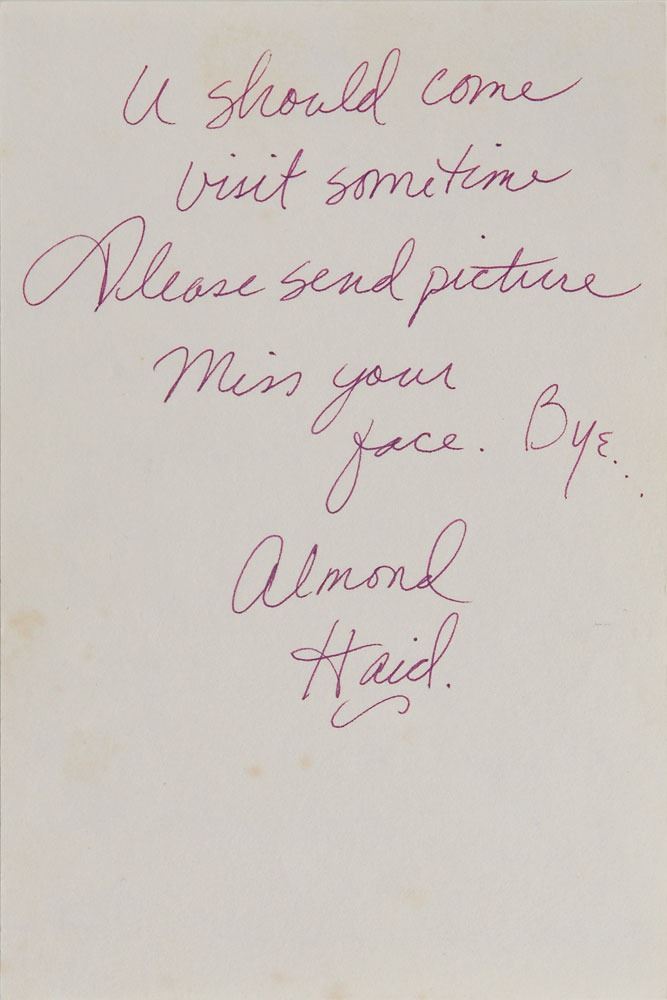 U should come
visit sometime
Please send picture
Miss your
face. Bye...
Almond
Haid.